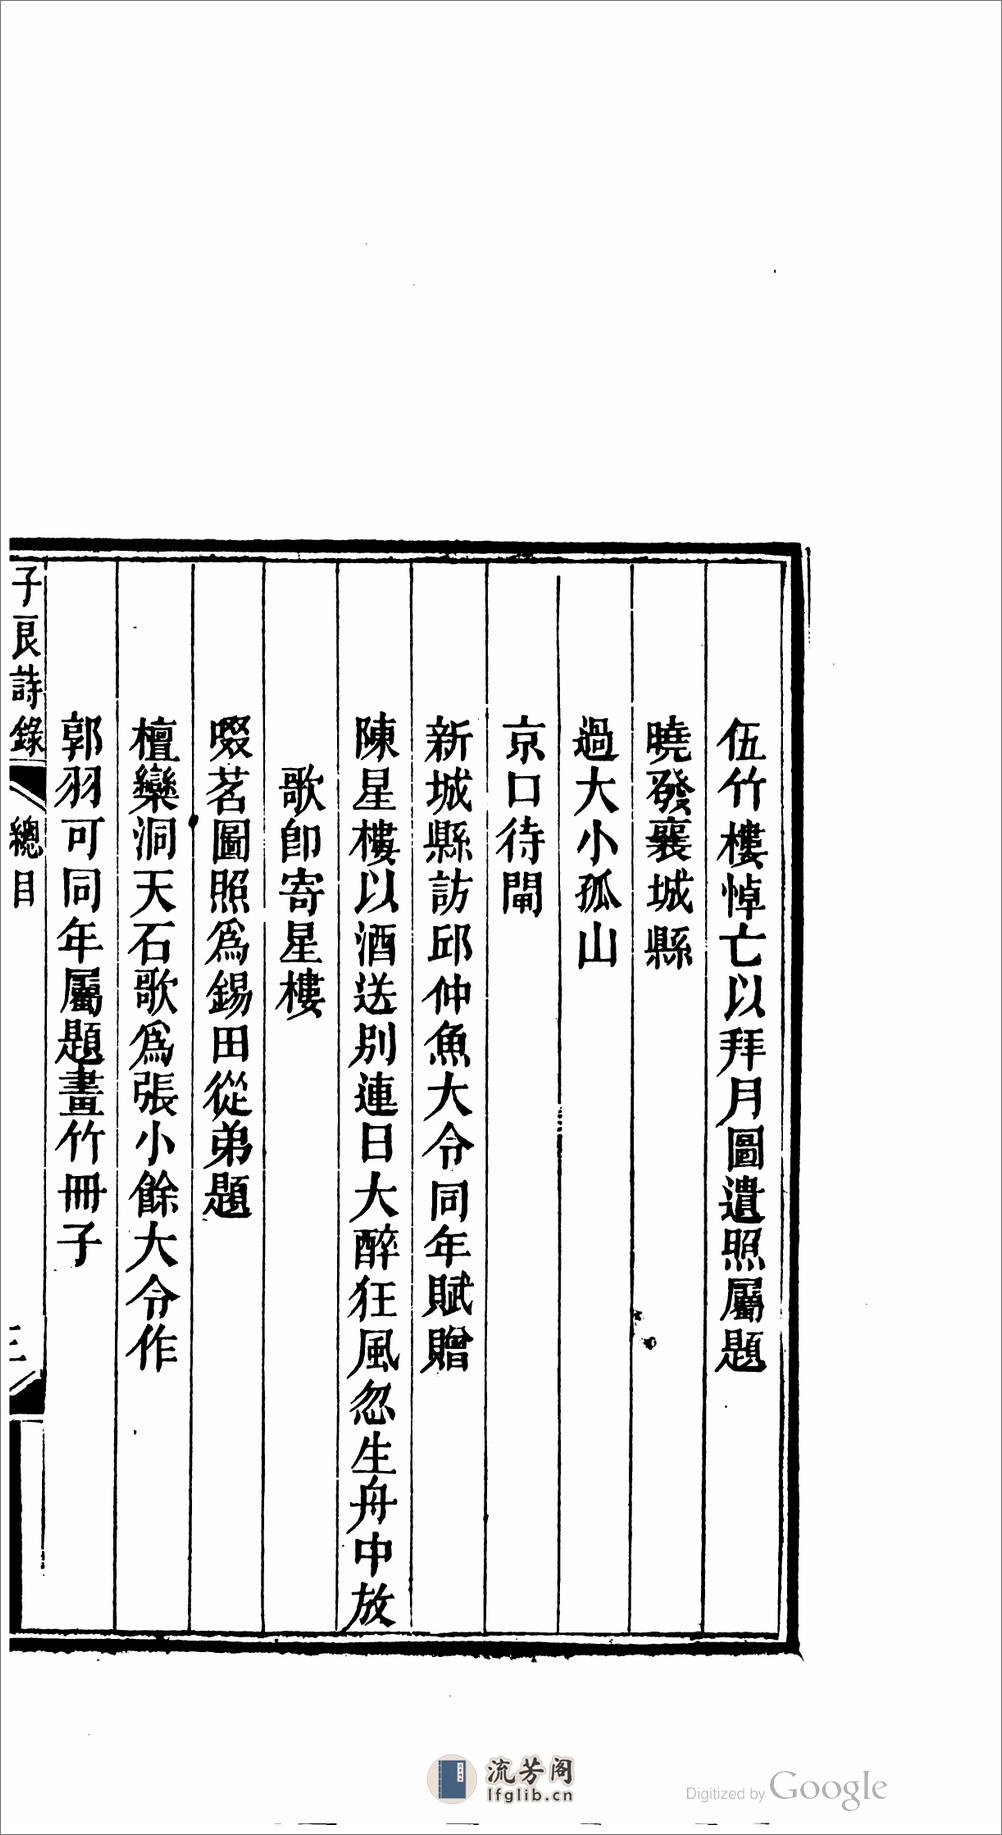 伍竹樓悼亡以拜月圖遺照屬題
曉發襄城縣
過大小孤山
京口待閘
新城縣訪邱仲魚大令同年賦贈
陳星樓以酒送别連日大醉狂風忽生舟中放
歌卽寄星樓
啜茗圖照爲錫田從弟題
檀欒洞天石歌爲張小餘大令作
郭羽可同年屬題畫竹冊子
子良詩錄
總目
三
流芳阁
lfglib.cn
Digitized by Google